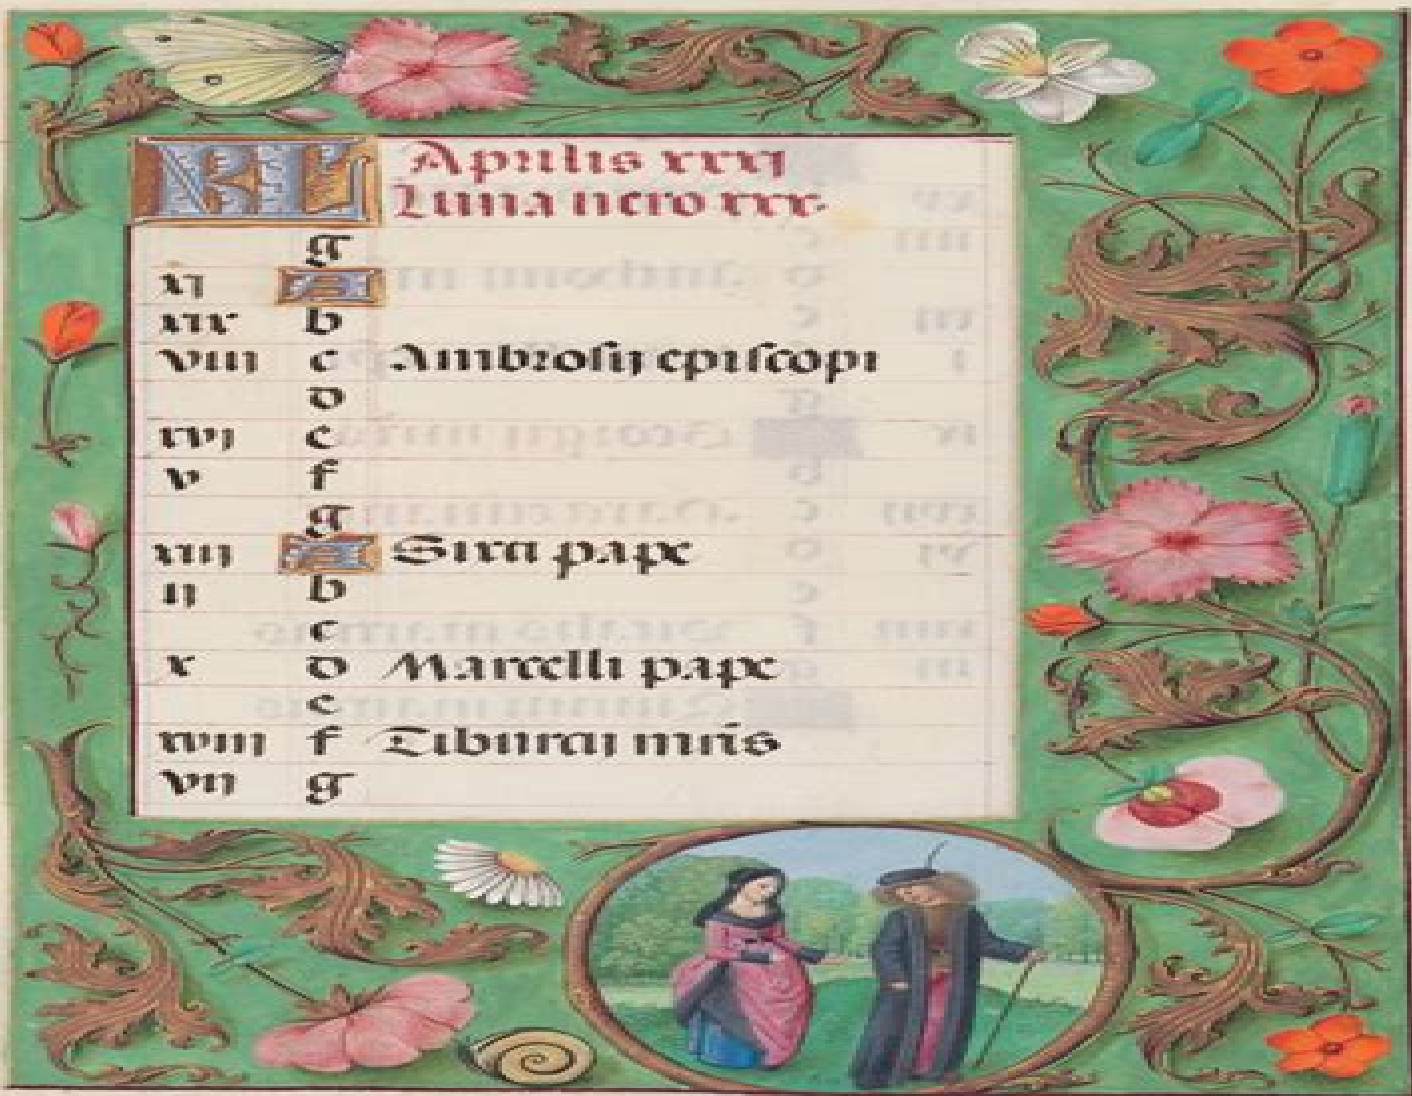 KL Aprilis xxxj
Luna uero xxx.
g
xj A
xix b
viij c Ambrosij episcopi
d
xvj e
v f
g
xiij A Sixti pape
ij b
c
x d Marcelli pape
e
xviij f Tiburcij mr̄is
vij g